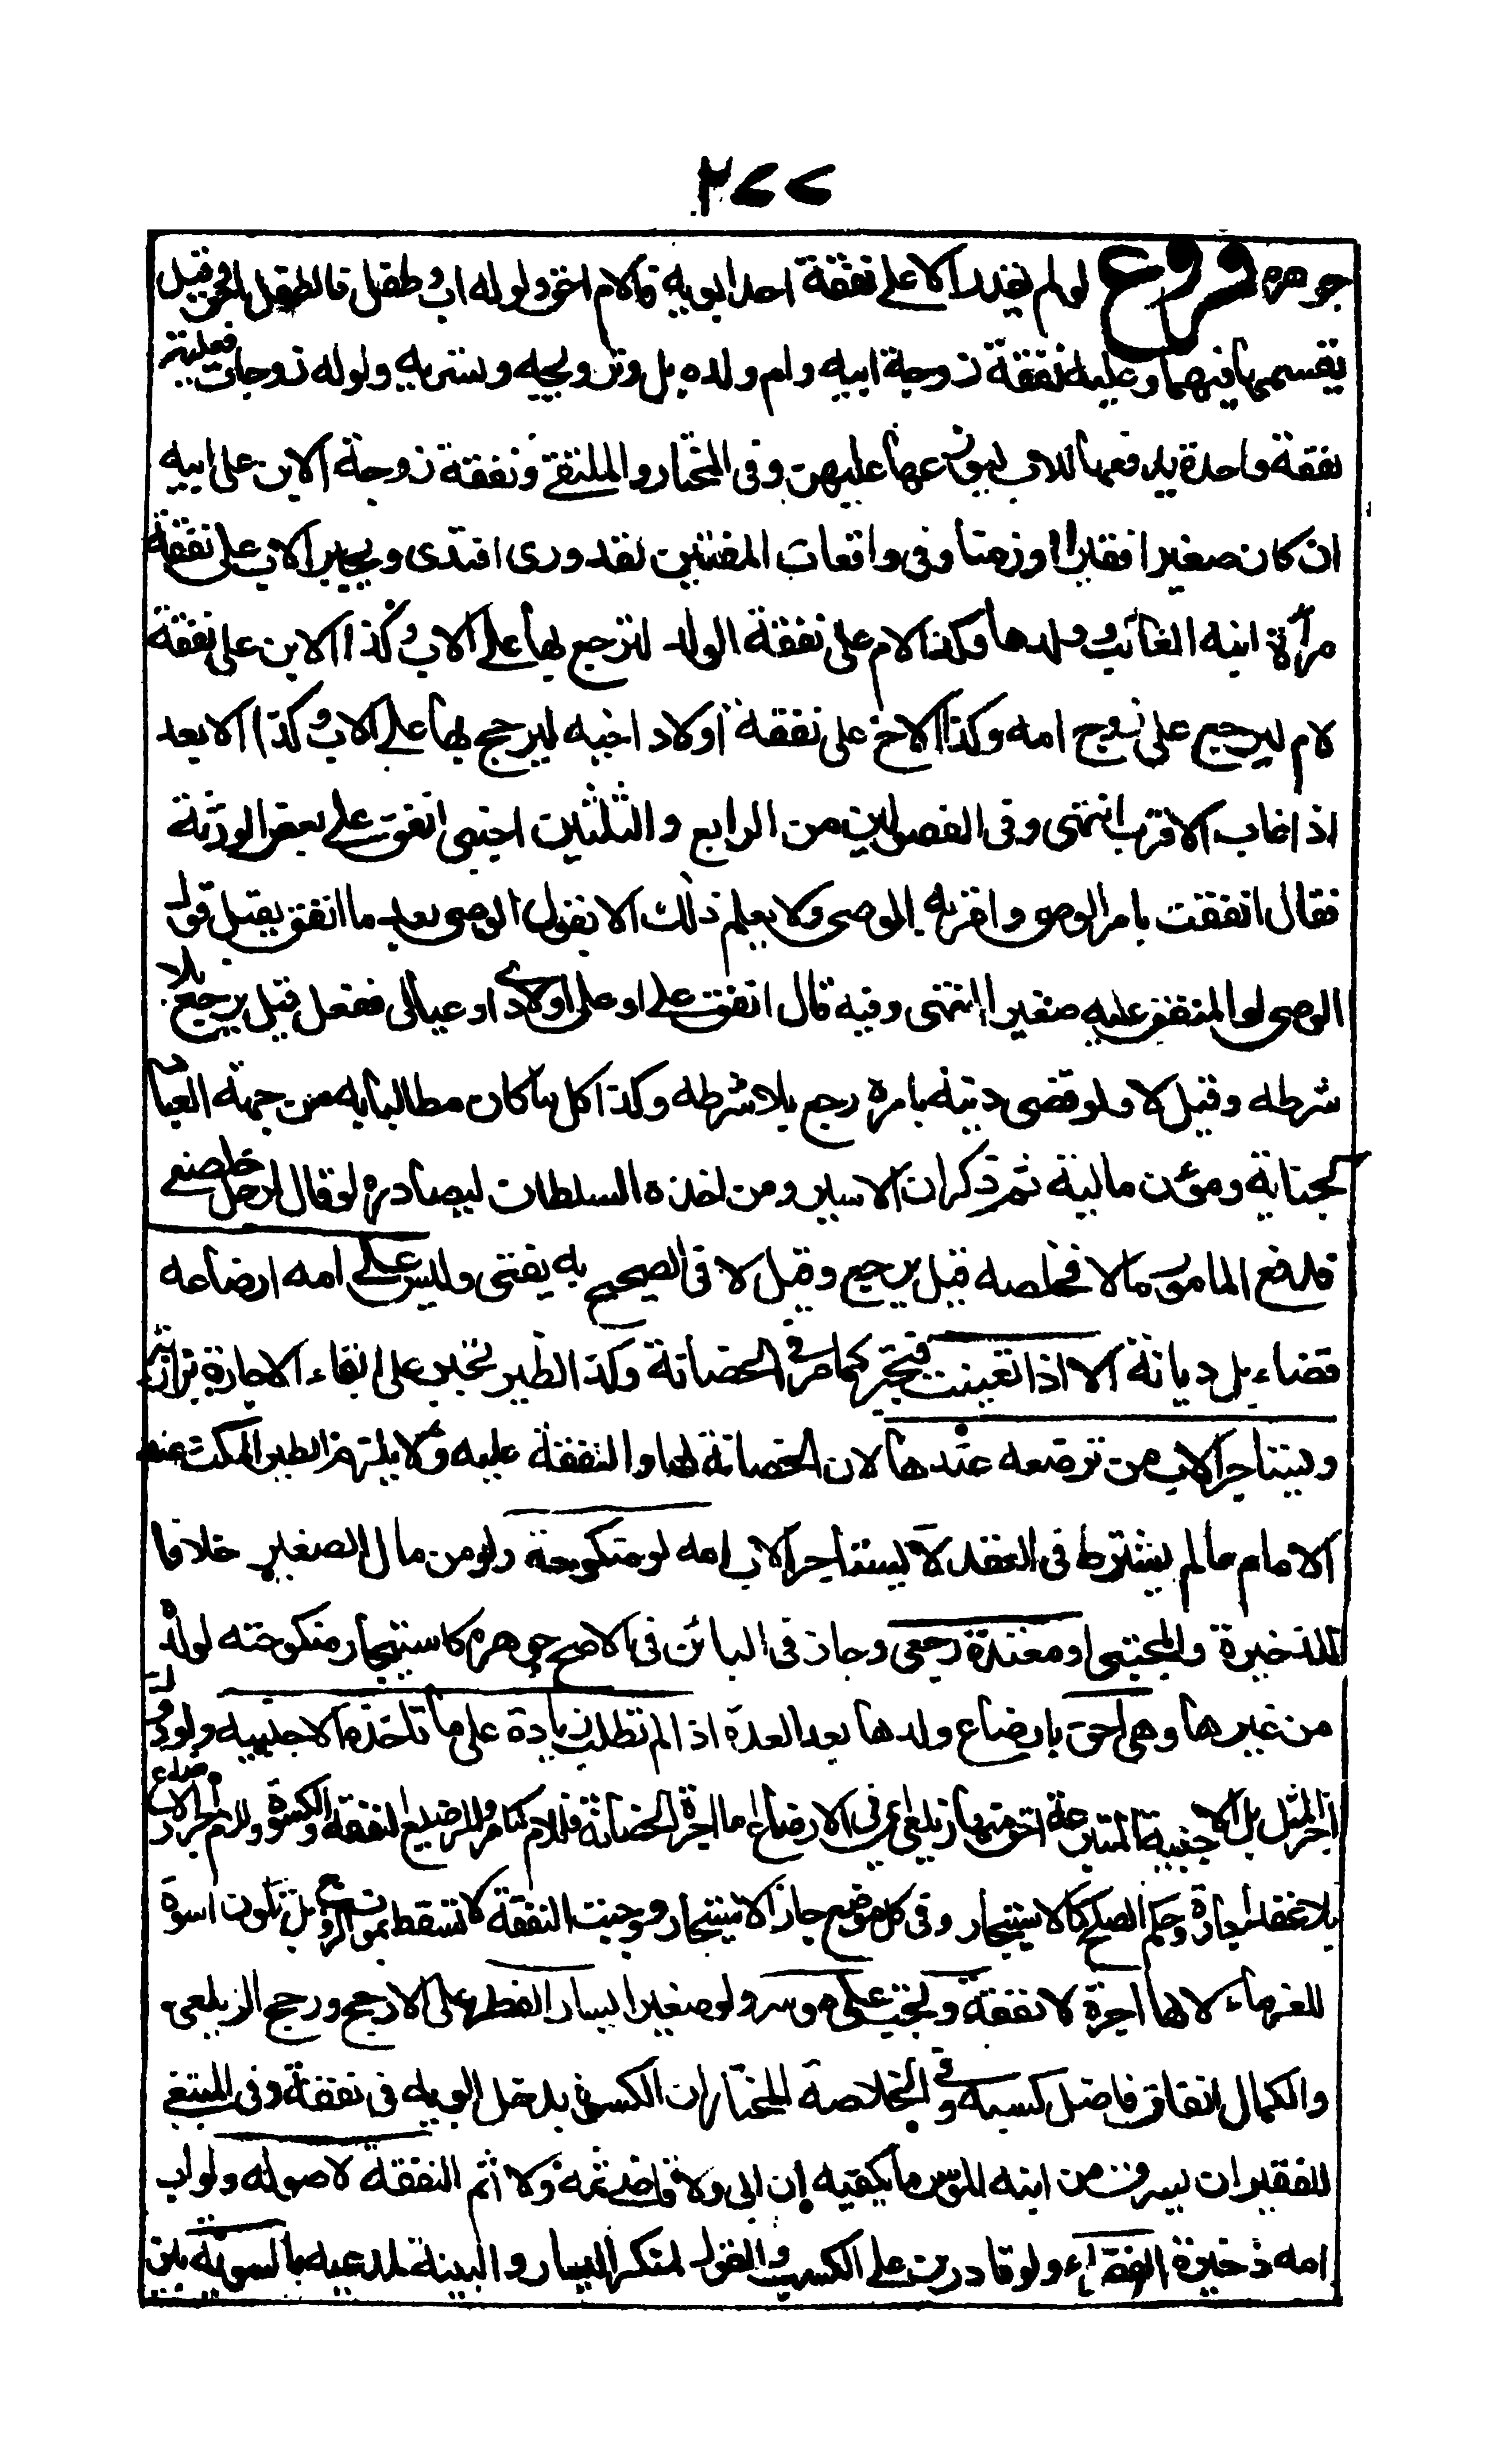 ٢٧٧
جوهره فروع لو لم يقدر الا على نفقة احد ابويه فالام احق ولو له اب وطفل فالطفل احق وقيل
يقسمها فيهما وعليه نفقة زوجة ابيه وام ولده بل وتزويجه وتسريه ولو له زوجات فعليه
نفقة واحدة يدفعها للاب ليوزعها عليهن وفى المختار والملتقى ونفقة زوجة الابن على ابيه
ان كان صغيرا فقيرا او زمنا وفى واقعات المفتين لقدورى افندى ويجبر الاب على نفقة
مرأة ابنه الغائب وولدها وكذا الام على نفقة الولد لترجع بها على الاب وكذا الابن على نفقة
لام ليرجع على زوج امه وكذا الاخ على نفقة اولاد اخيه ليرجع بها على الاب وكذا الابعد
اذا غاب الاقرب انتهى وفى الفصولين من الرابع والثلثين اجنبى انفق على بعض الورثة
فقال انفقت بامر الوصى واقر به الوصى ولا يعلم ذلك الا بقول الوصى بعد ما انفق يقبل قول
الوصى لو المنفق عليه صغيرا انتهى وفيه قال انفق على او على اولادى او عيالى ففعل قيل يرجع بلا
شرطه وقيل لا ولو قضى دينه بامره رجع بلا شرطه وكذا كل ما كان مطالبا به من جهة العباد
لجناية ومؤن مالية ثم ذكر ان الاسير ومن اخذه السلطان ليصادره لو قال لرجل خلصنى
فدفع المامور مالا فخلصه قيل يرجع وقيل لا فى الصحيح به يفتى وليس على امه ارضاعه
قضاء بل ديانة الا اذا تعينت فتجبر كما مر فى الحضانة وكذا الظير تجبر على ابقاء الاجارة بزازيه
ويستاجر الاب من ترضعه عندها لان الحضانة لها والنفقة عليه ولا يلزم الظير المكث عند
الام ما لم يشترط فى العقد لا يستاجر الاب امه لو منكوحة ولو من مال الصغير خلافا
للذخيرة والمجتبى او معتدة رجعى وجاز فى البائن فى الاصح جوهره كاستيجار منكوحته لولده
من غيرها وهى احق بارضاع ولدها بعد العدة اذا لم تطلب زيادة على ما تاخذه الاجنبيه ولو دون
اجر المثل بل الاجنبية المتبرعة احق منها زيلعى اى فى الارضاع اما اجرة الحضانة فللام كما مر وللرضيع النفقة والكسوة وللام اجر الارضاع
بلا عقد اجارة وحكم الصلح كالاستيجار وفى كل موضع جاز الاستيجار ووجبت النفقة لا تسقط بموت الزوج بل تكون اسوة
للغرماء لانها اجرة لا نفقة وتجب على موسر ولو صغيرا يسار الفطرة على الارجح ورجح الزيلعى
والكمال انفاق فاضل كسبه وفى الخلاصة المختار ان الكسوب يدخل ابويه فى نفقته وفى المبتغى
للفقير ان يسرق من ابنه الموسر ما يكفيه ان ابى ولا قاضى ثمه ولا اثم النفقة لاصوله ولو اب
امه ذخيرة الفقراء ولو قادرين على الكسب والقول لمنكر اليسار والبينة لمدعيه بالسوية بين